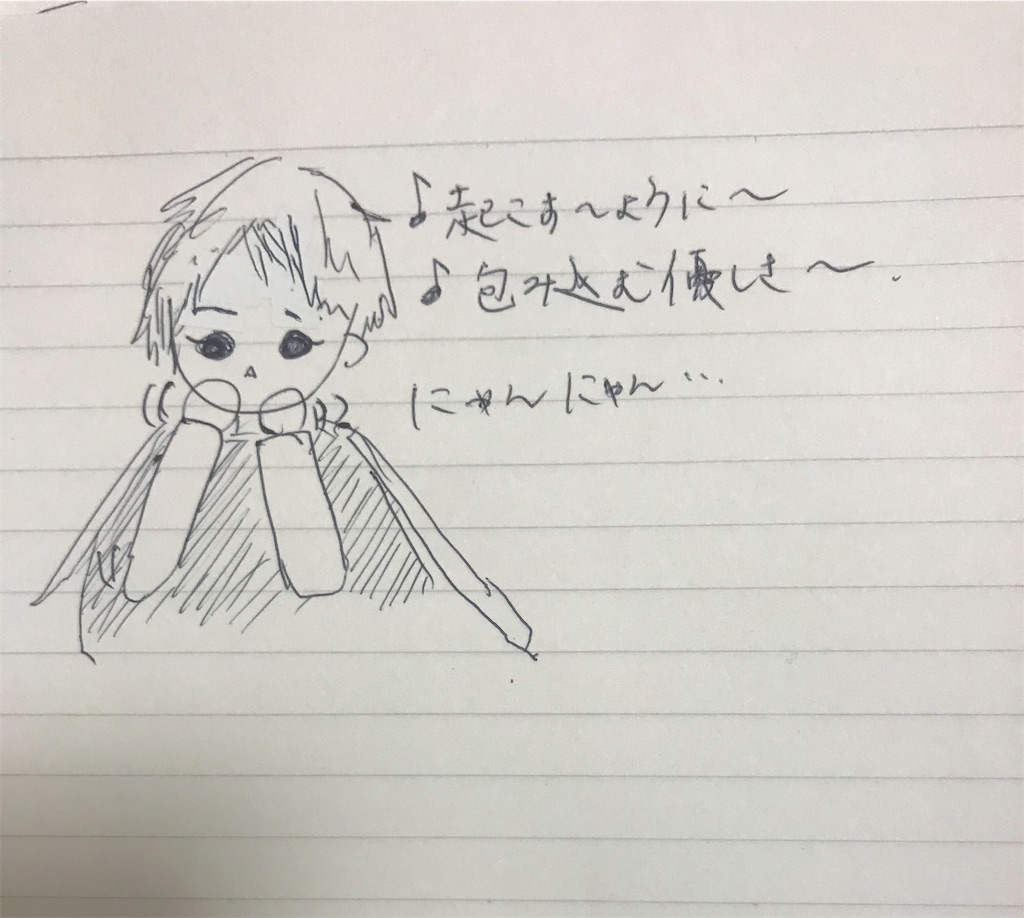 ♪起こす〜ように〜
♪包み込む優しさ〜.
にゃんにゃん…